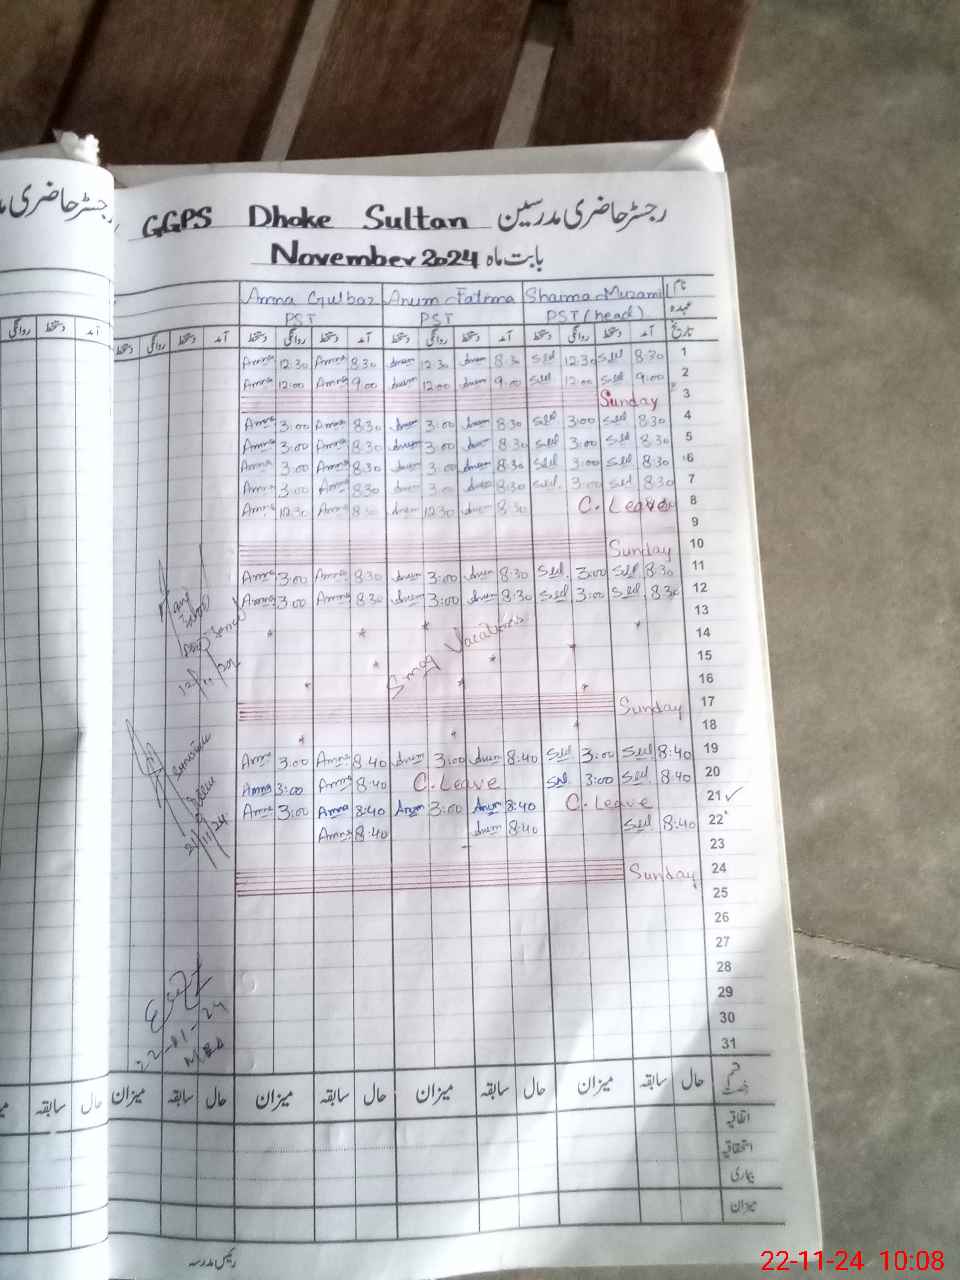 رجسٹر حاضری مدرسین GGPS Dhoke Sultan
بابت ماہ November 2024
رجسٹر حاضری
نام Shaima Muzamil Anum Fatima Amna Gulbaz
عہدہ PST (head) PST PST
تاریخ آمد دستخط روانگی دستخط آمد دستخط روانگی دستخط آمد دستخط روانگی دستخط آمد دستخط روانگی دستخط
1 8:30 12:30 8:30 Anum 12:30 Anum 8:30 Amna 12:30 Amna
2 9:00 12:00 9:00 Anum 12:00 Anum 9:00 Amna 12:00 Amna
3 Sunday
4 8:30 3:00 8:30 Anum 3:00 Anum 8:30 Amna 3:00 Amna
5 8:30 3:00 8:30 Anum 3:00 Anum 8:30 Amna 3:00 Amna
6 8:30 3:00 8:30 Anum 3:00 Anum 8:30 Amna 3:00 Amna
7 8:30 3:00 8:30 Anum 3:00 Anum 8:30 Amna 3:00 Amna
8 C. Leave 8:30 Anum 12:30 Anum 8:30 Amna 12:30 Amna
9
10 Sunday
11 8:30 3:00 8:30 Anum 3:00 Anum 8:30 Amna 3:00 Amna
12 8:30 3:00 8:30 Anum 3:00 Anum 8:30 Amna 3:00 Amna
13
14 Smog Vacations
15
16
17 Sunday
18
19 8:40 3:00 8:40 Anum 3:00 Anum 8:40 Amna 3:00 Amna
20 8:40 3:00 C. Leave 8:40 Amna 3:00 Amna
21 C. Leave 8:40 Anum 3:00 Anum 8:40 Amna 3:00 Amna
22 8:40 8:40 Anum 8:40 Amna
23
24 Sunday
25
26
27
28
29
30
31
21/11/24
22-11-24
حال سابقہ میزان حال سابقہ میزان حال سابقہ میزان حال سابقہ میزان حال سابقہ
اتفاقیہ
استحقاقیہ
بیماری
میزان
رئیس مدرسہ
22-11-24 10:08